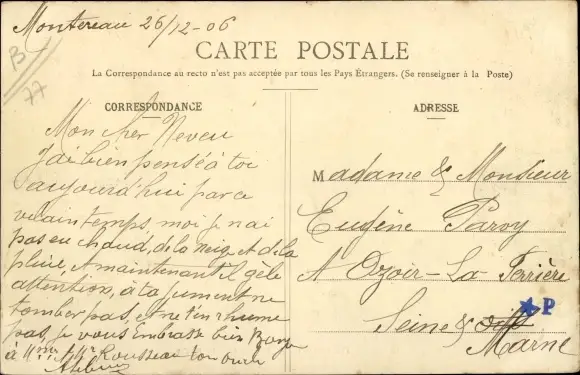 Montereau 26/12-06
B
77
CARTE POSTALE
La Correspondance au recto n'est pas acceptée par tous les Pays Étrangers. (Se renseigner à la Poste)
CORRESPONDANCE
Mon cher Neveu
j'ai bien pensé à toi
aujourd'hui par ce
vilain temps moi je n'ai
pas eu chaud, de la neige et de la
pluie, et maintenant il gèle
attention, à ta jument ne
tomber pas, et ne t'enrhume
pas, je vous embrasse bien
à Mme & Mr Rousseau ton oncle
ADRESSE
Madame & Monsieur
Eugène Paroy
A Ozoir-La Ferrière
Seine & Oise
Marne
★P